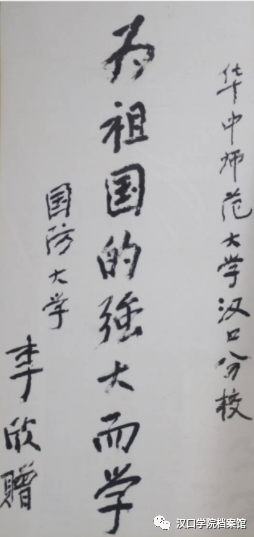 华中师范大学汉口分校
为祖国的强大而学
国防大学
李欣赠
汉口学院档案馆